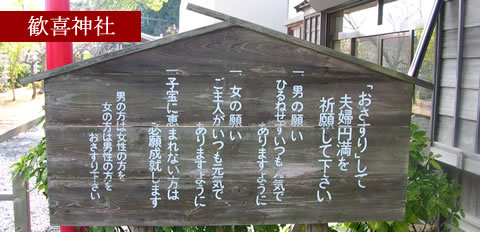 歓喜神社
「おさすり」して
夫婦円満を
祈願して下さい
一、男の願い
ひるねせずいつも元気で
ありますように
一、女の願い
ご主人がいつも元気で
ありますように
一、子宝に恵まれない方は
必願成就します
男の方は女性の方を
女の方は男性の方を
おさすり下さい